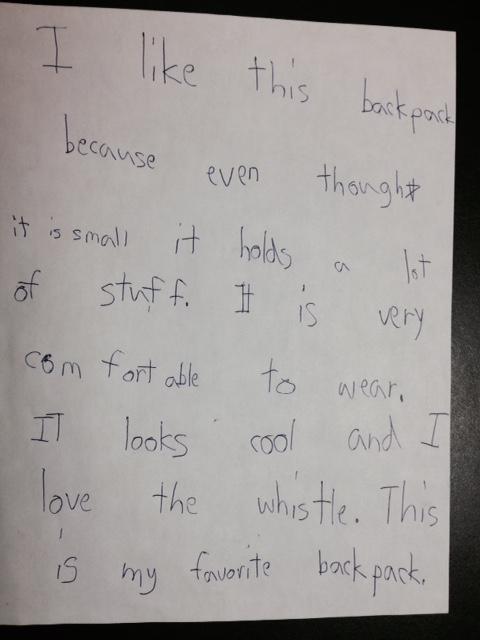 I like this backpack
because even though
it is small it holds a lot
of stuff. It is very
comfortable to wear.
IT looks cool and I
love the whistle. This
is my favorite backpack.